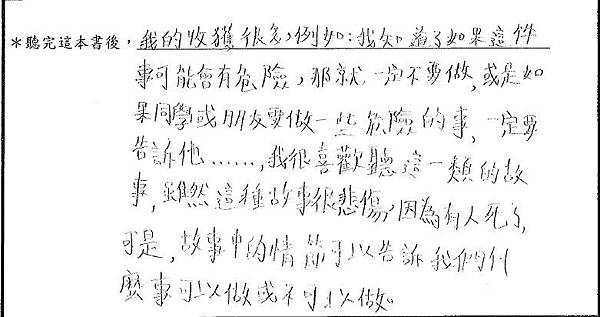 ＊聽完這本書後，我的收獲很多，例如：我知道了如果這件
事可能會有危險，那就一定不要做，或是如
果同學或朋友要做一些危險的事，一定要
告訴他……，我很喜歡聽這一類的故
事，雖然這種故事很悲傷，因為有人死了，
可是，故事中的情節可以告訴我們什
麼事可以做或不可以做。